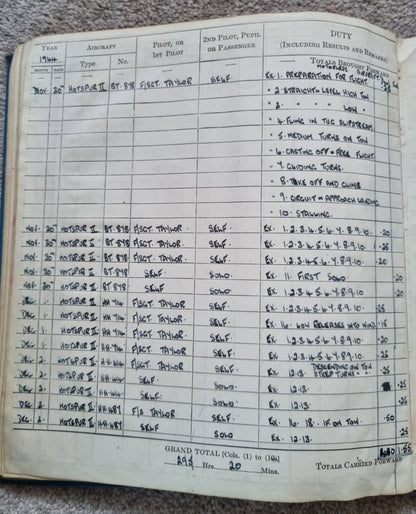 YEAR AIRCRAFT PILOT, OR 1ST PILOT 2ND PILOT, PUPIL OR PASSENGER DUTY (INCLUDING RESULTS AND REMARKS)
1944 Type No.
MONTH DATE TOTALS BROUGHT FORWARD
NOV. 20TH HOTSPUR II BT. 878 F/SGT. TAYLOR SELF EX. 1. PREPARATION FOR FLIGHT
" 2. STRAIGHT & LEVEL HIGH TOW
" 3. " " " LOW "
" 4. FLYING IN THE SLIPSTREAM.
" 5. MEDIUM TURNS ON TOW
" 6. CASTING OFF = FREE FLIGHT
" 7. GLIDING TURNS.
" 8. TAKE OFF AND CLIMB
" 9. CIRCUIT = APPROACH LANDING
" 10. STALLING.
NOV. 20TH HOTSPUR II BT. 878 F/SGT. TAYLOR. SELF. EX. 1.2.3.4.5.6.7.8.9.10. .20
NOV. 20TH HOTSPUR II BT. 878 F/SGT. TAYLOR. SELF. EX. 1.2.3.4.5.6.7.8.9.10. .25
NOV. 20TH HOTSPUR II BT. 878 F/SGT. TAYLOR. SELF. EX. 1.2.3.4.5.6.7.8.9.10 .20
NOV. 20TH HOTSPUR II BT. 878 SELF. SOLO. EX. 11. FIRST SOLO. .20
NOV. 20TH HOTSPUR II BT. 878 F/SGT. TAYLOR SELF. EX. 1.2.3.4.5.6.7.8.9.10
DEC. 1. HOTSPUR II HH 714 F/SGT. TAYLOR SELF. EX. 1.2.3.4.5.6.7.8.9.10. .25
DEC. 1. HOTSPUR II HH 714 F/SGT. TAYLOR SELF. EX. 16. LOW RELEASES INTO WIND .15
DEC. 1. HOTSPUR II F/SGT. TAYLOR. SELF. EX. 1.2.3.4.5.6.7.8.9.10 .20
HOTSPUR II F/SGT. TAYLOR. SELF. EX. 12.13. DESCENDING ON TOW STEEP TURNS .25
2. HOTSPUR II SELF. SOLO. EX. 12.13. .25
2. HOTSPUR II SELF. EX. 12.13.
DEC. 2. HOTSPUR II TAYLOR. SELF. EX. 16. 18. ON TOW. .50
DEC. 2. HOTSPUR II SELF SOLO EX. 12.13. .25
GRAND TOTAL [Cols. (1) to (10)] Hrs. 20 Mins. TOTALS CARRIED FORWARD